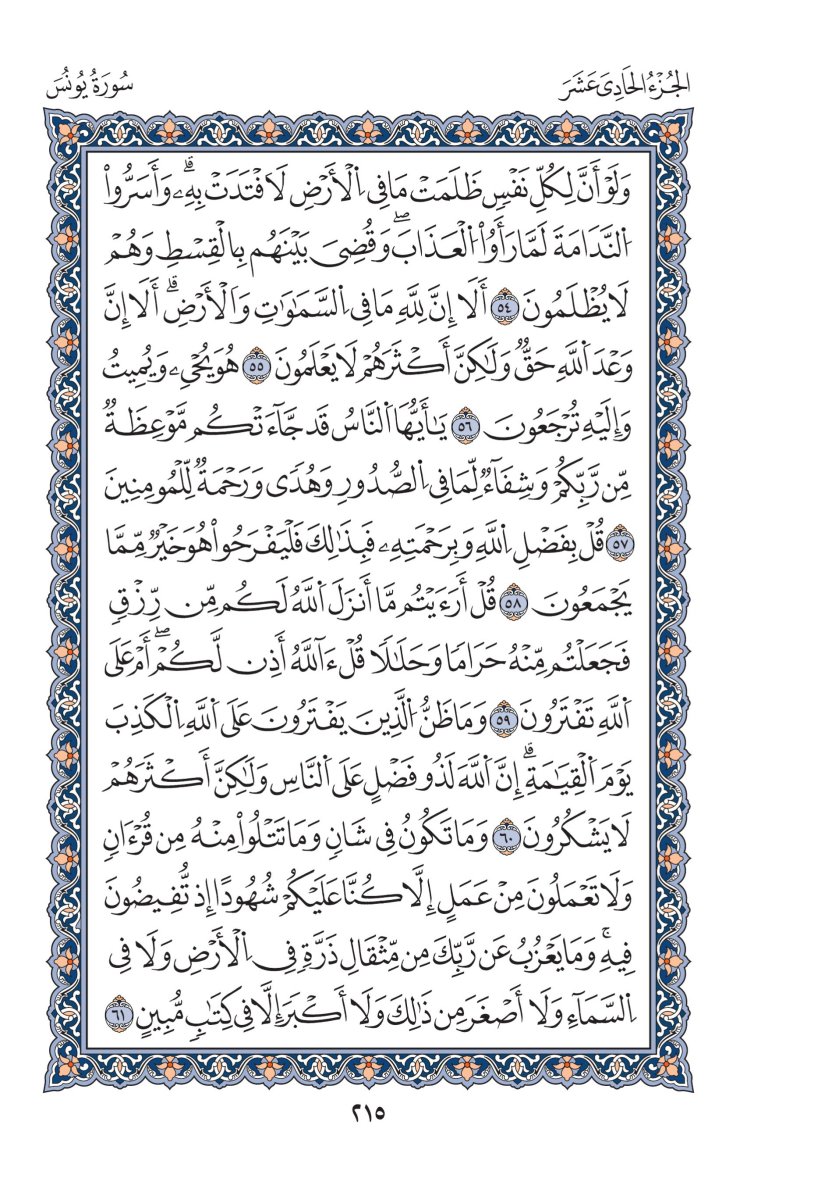 الجُزْءُ الحَادِى عَشَرَ
سُورَةُ يُونُسَ
وَلَوْ أَنَّ لِكُلِّ نَفْسٍ ظَلَمَتْ مَا فِى اِ۬لْأَرْضِ لَافْتَدَتْ بِهِۦۗ وَأَسَرُّواْ
اُ۬لنَّدَامَةَ لَمَّا رَأَوُاْ اُ۬لْعَذَابَۖ وَقُضِىَ بَيْنَهُم بِالْقِسْطِ وَهُمْ
لَا يُظْلَمُونَ ٥٤ أَلَا إِنَّ لِلَّهِ مَا فِى اِ۬لسَّمَٰوَٰتِ وَالْأَرْضِۗ أَلَا إِنَّ
وَعْدَ اَ۬للَّهِ حَقٌّ وَلَٰكِنَّ أَكْثَرَهُمْ لَا يَعْلَمُونَ ٥٥ هُوَ يُحْىِۦ وَيُمِيتُ
وَإِلَيْهِ تُرْجَعُونَ ٥٦ يَٰأَيُّهَا اَ۬لنَّاسُ قَد جَّآءَتْكُم مَّوْعِظَةٌ
مِّن رَّبِّكُمْ وَشِفَآءٌ لِّمَا فِى اِ۬لصُّدُورِ وَهُدًى وَرَحْمَةٌ لِّلْمُومِنِينَ
٥٧ قُلْ بِفَضْلِ اِ۬للَّهِ وَبِرَحْمَتِهِۦ فَبِذَٰلِكَ فَلْيَفْرَحُواْ هُوَ خَيْرٌ مِّمَّا
يَجْمَعُونَ ٥٨ قُلْ أَرَءَيْتُم مَّا أَنزَلَ اَ۬للَّهُ لَكُم مِّن رِّزْقٍ
فَجَعَلْتُم مِّنْهُ حَرَامًا وَحَلَٰلًا قُلْ ءَآللَّهُ أَذِن لَّكُمْۖ أَمْ عَلَى
اَ۬للَّهِ تَفْتَرُونَ ٥٩ وَمَا ظَنُّ اُ۬لَّذِينَ يَفْتَرُونَ عَلَى اَ۬للَّهِ اِ۬لْكَذِبَ
يَوْمَ اَ۬لْقِيَٰمَةِۗ إِنَّ اَ۬للَّهَ لَذُو فَضْلٍ عَلَى اَ۬لنَّاسِ وَلَٰكِنَّ أَكْثَرَهُمْ
لَا يَشْكُرُونَ ٦٠ وَمَا تَكُونُ فِى شَانٍ وَمَا تَتْلُواْ مِنْهُ مِن قُرْءَانٍ
وَلَا تَعْمَلُونَ مِنْ عَمَلٍ إِلَّا كُنَّا عَلَيْكُمْ شُهُودًا إِذ تُّفِيضُونَ
فِيهِۚ وَمَا يَعْزُبُ عَن رَّبِّكَ مِن مِّثْقَالِ ذَرَّةٍ فِى اِ۬لْأَرْضِ وَلَا فِى
اِ۬لسَّمَآءِ وَلَا أَصْغَرَ مِن ذَٰلِكَ وَلَا أَكْبَرَ إِلَّا فِى كِتَٰبٍ مُّبِينٍ ٦١
٢١٥